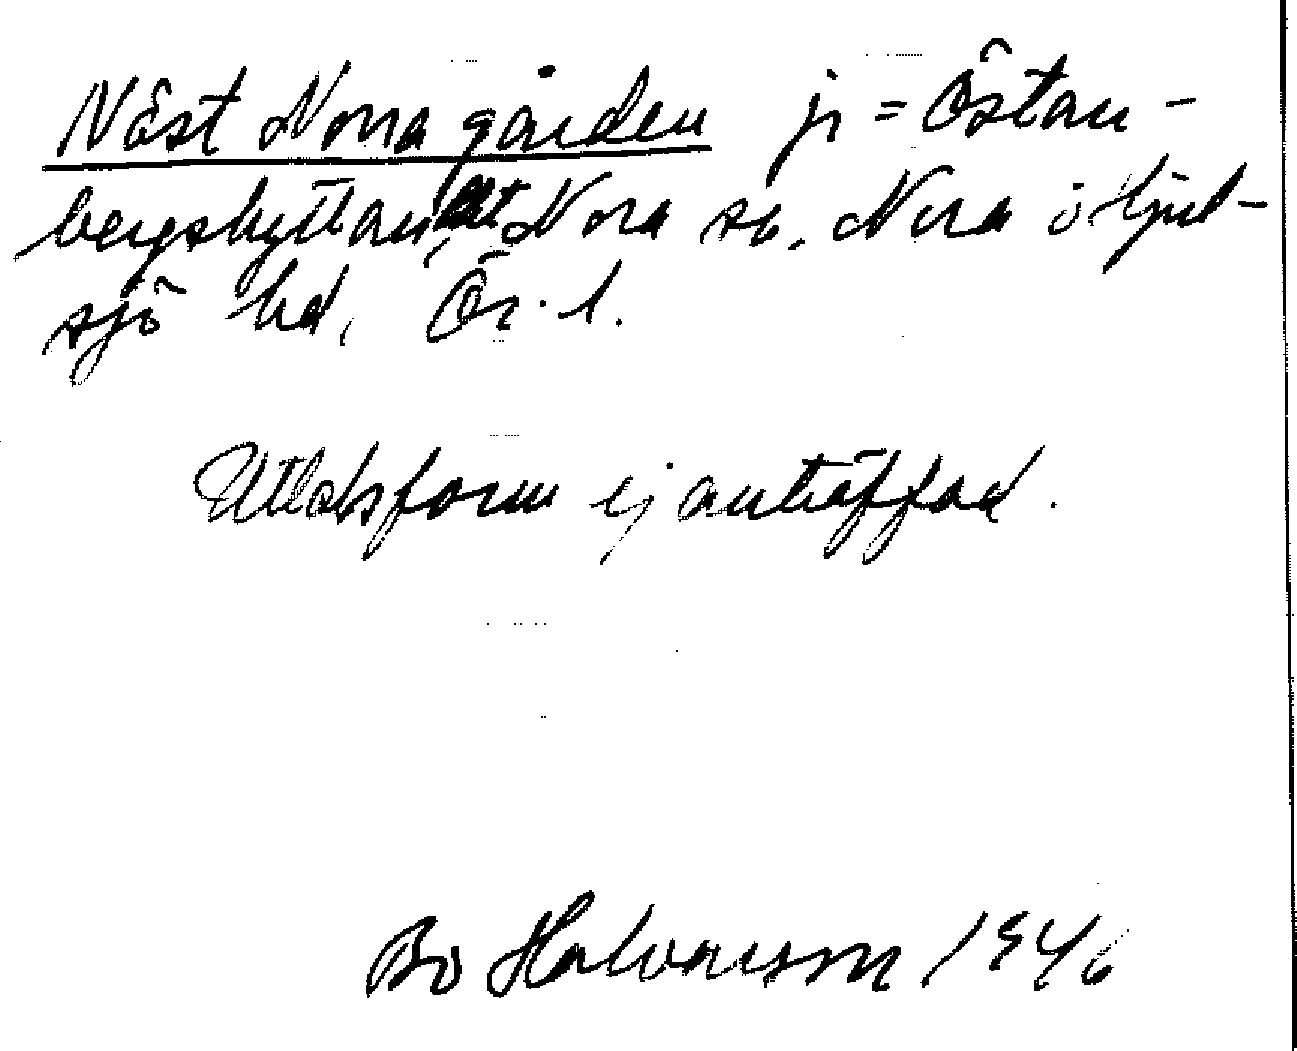 Näst Norra gården jr = Östan-
bergshyttan, Nora sn. Nora o Hjul-
sjö hd, Ör. l.
Uttalsform ej anträffad.
Bo Halvarson 1946